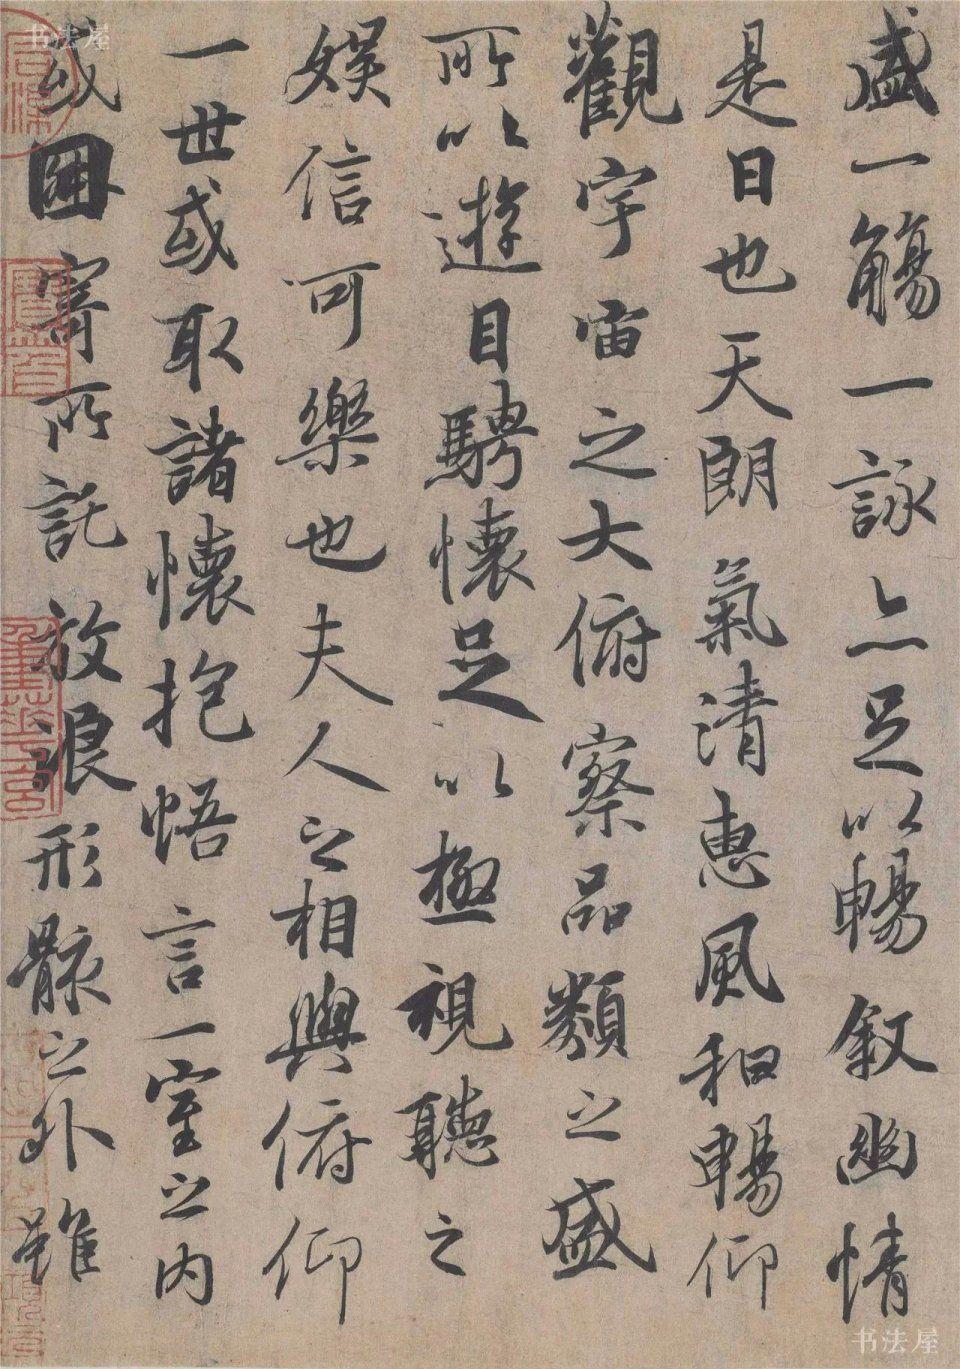 盛一觴一詠亦足以暢叙幽情
是日也天朗氣清惠風和暢仰
觀宇宙之大俯察品類之盛
所以遊目騁懷足以極視聽之
娛信可樂也夫人之相與俯仰
一世或取諸懷抱悟言一室之內
或因寄所託放浪形骸之外雖
书法屋
书法屋